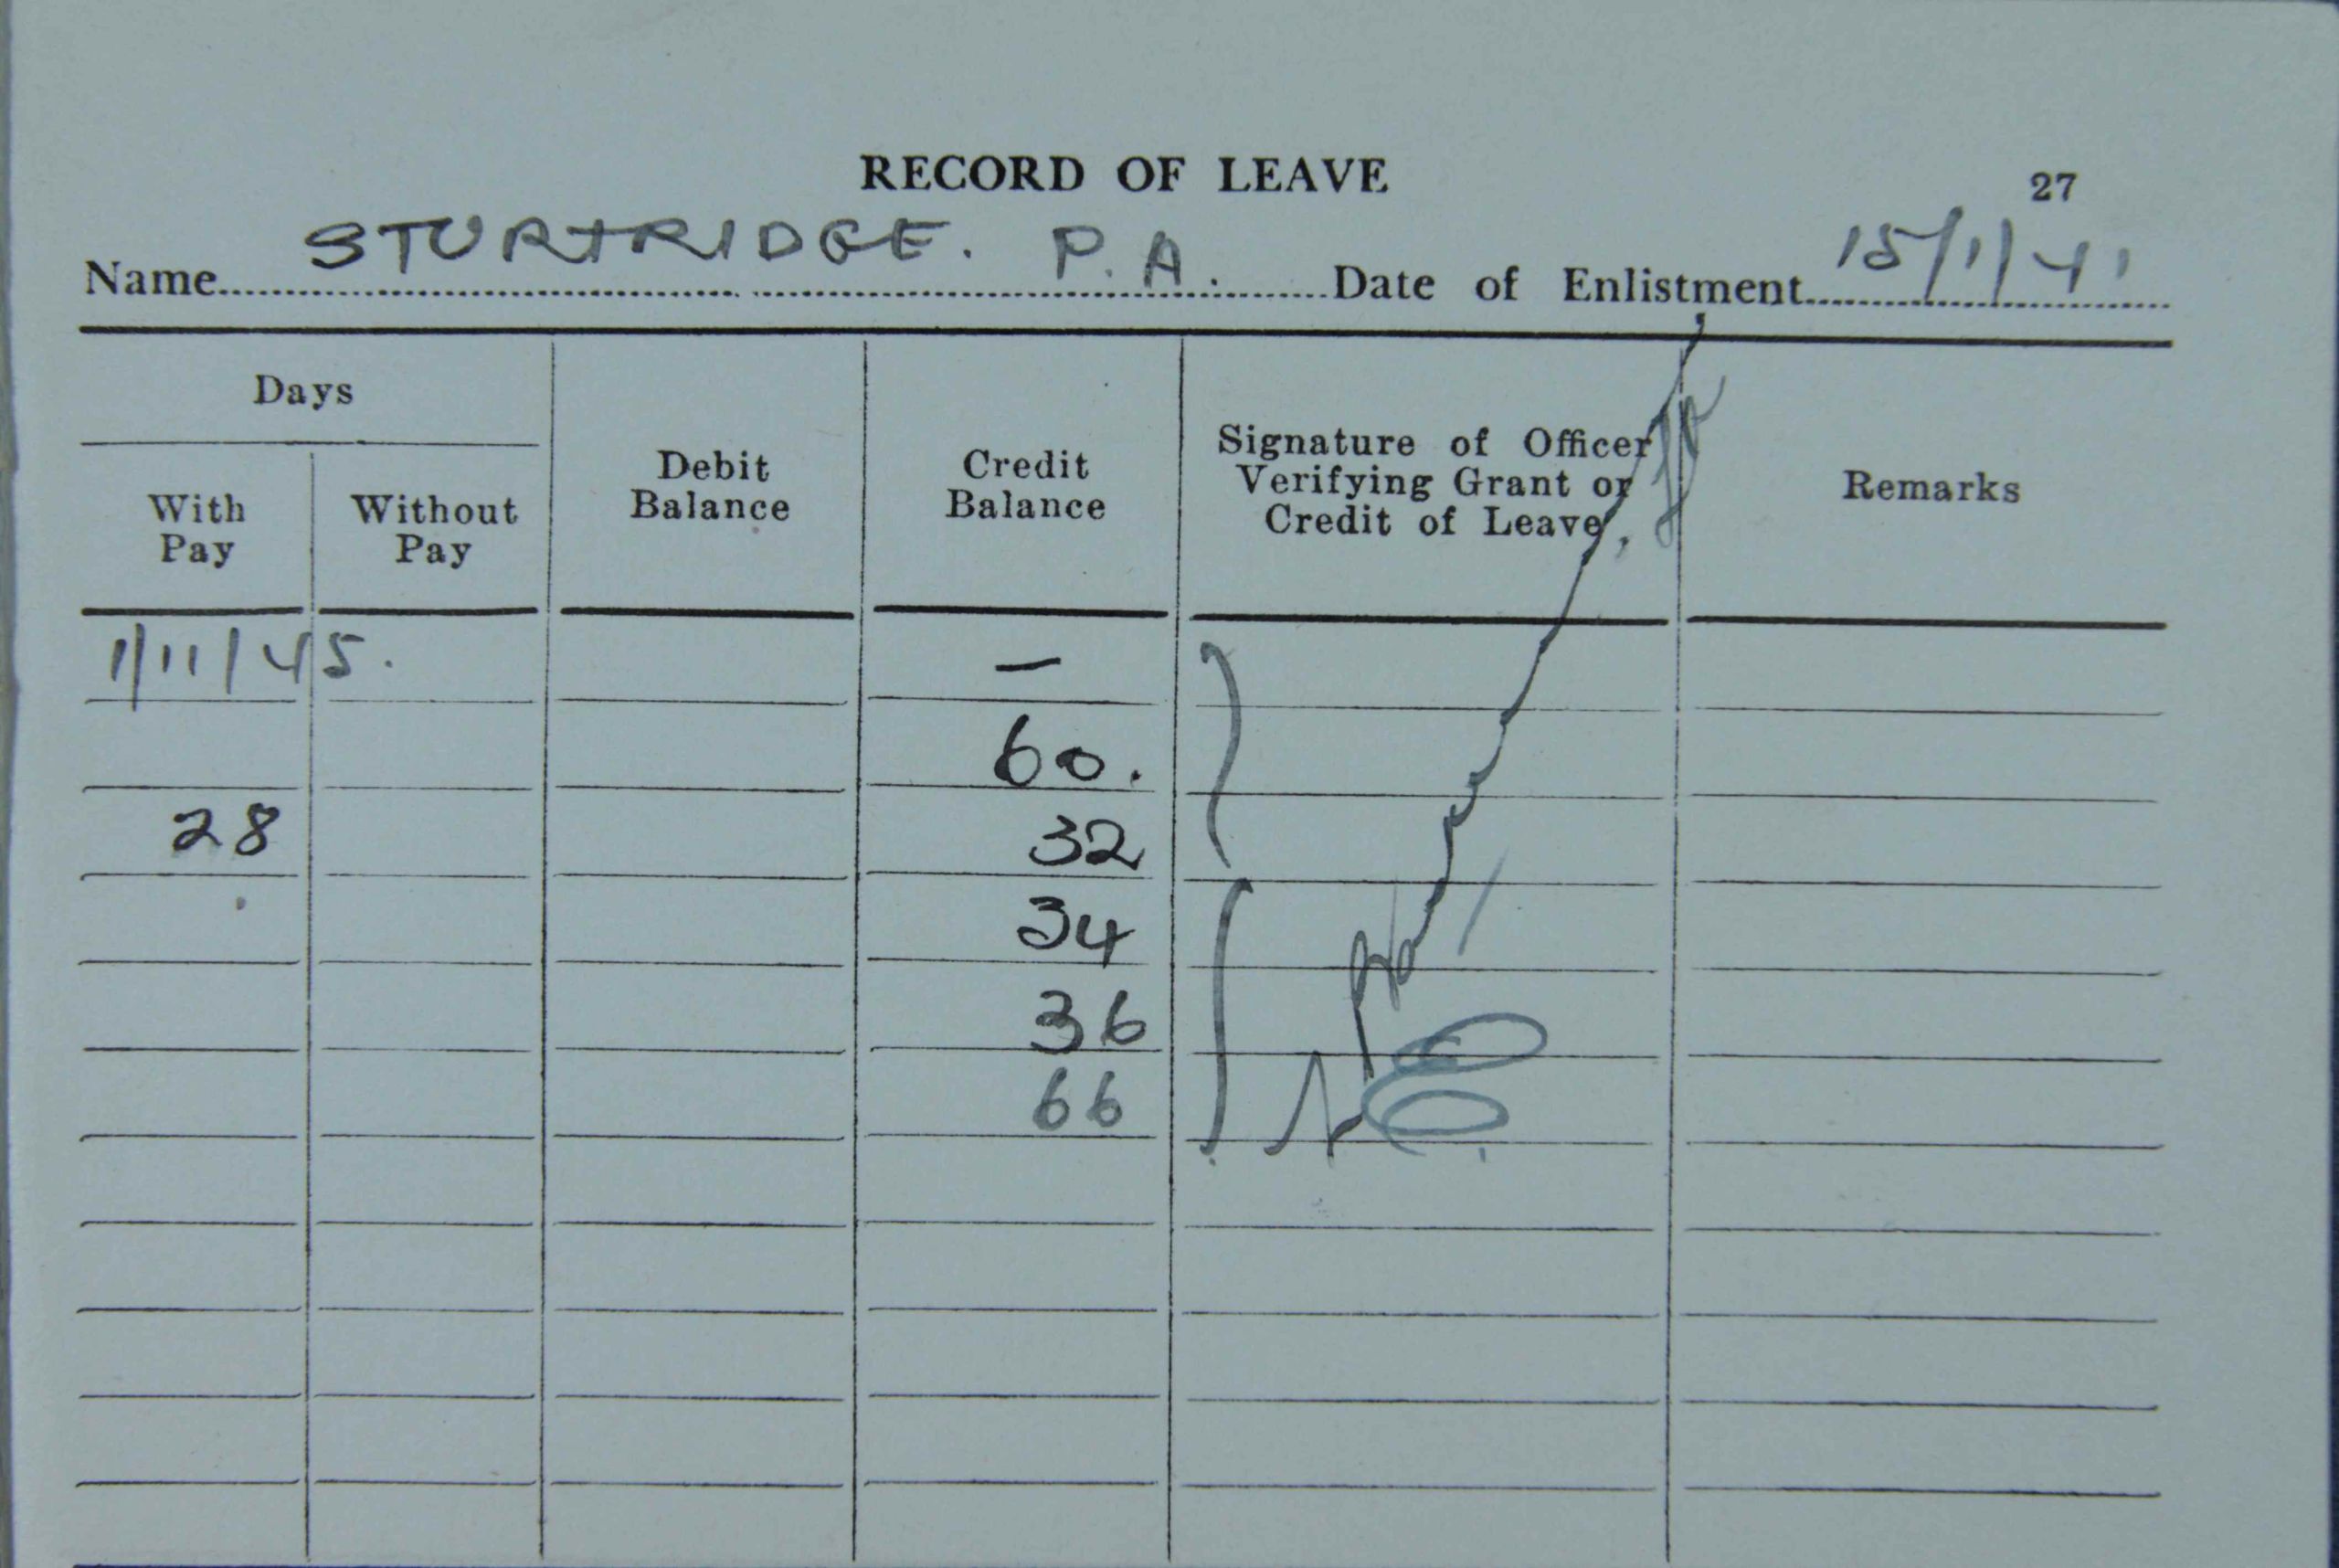 RECORD OF LEAVE 27
Name STURTRIDGE. P. A. Date of Enlistment 15/1/41
Days
With Pay
Without Pay
Debit Balance
Credit Balance
Signature of Officer Verifying Grant or Credit of Leave
Remarks
1/11/45. —
60.
28 32
34
36
66